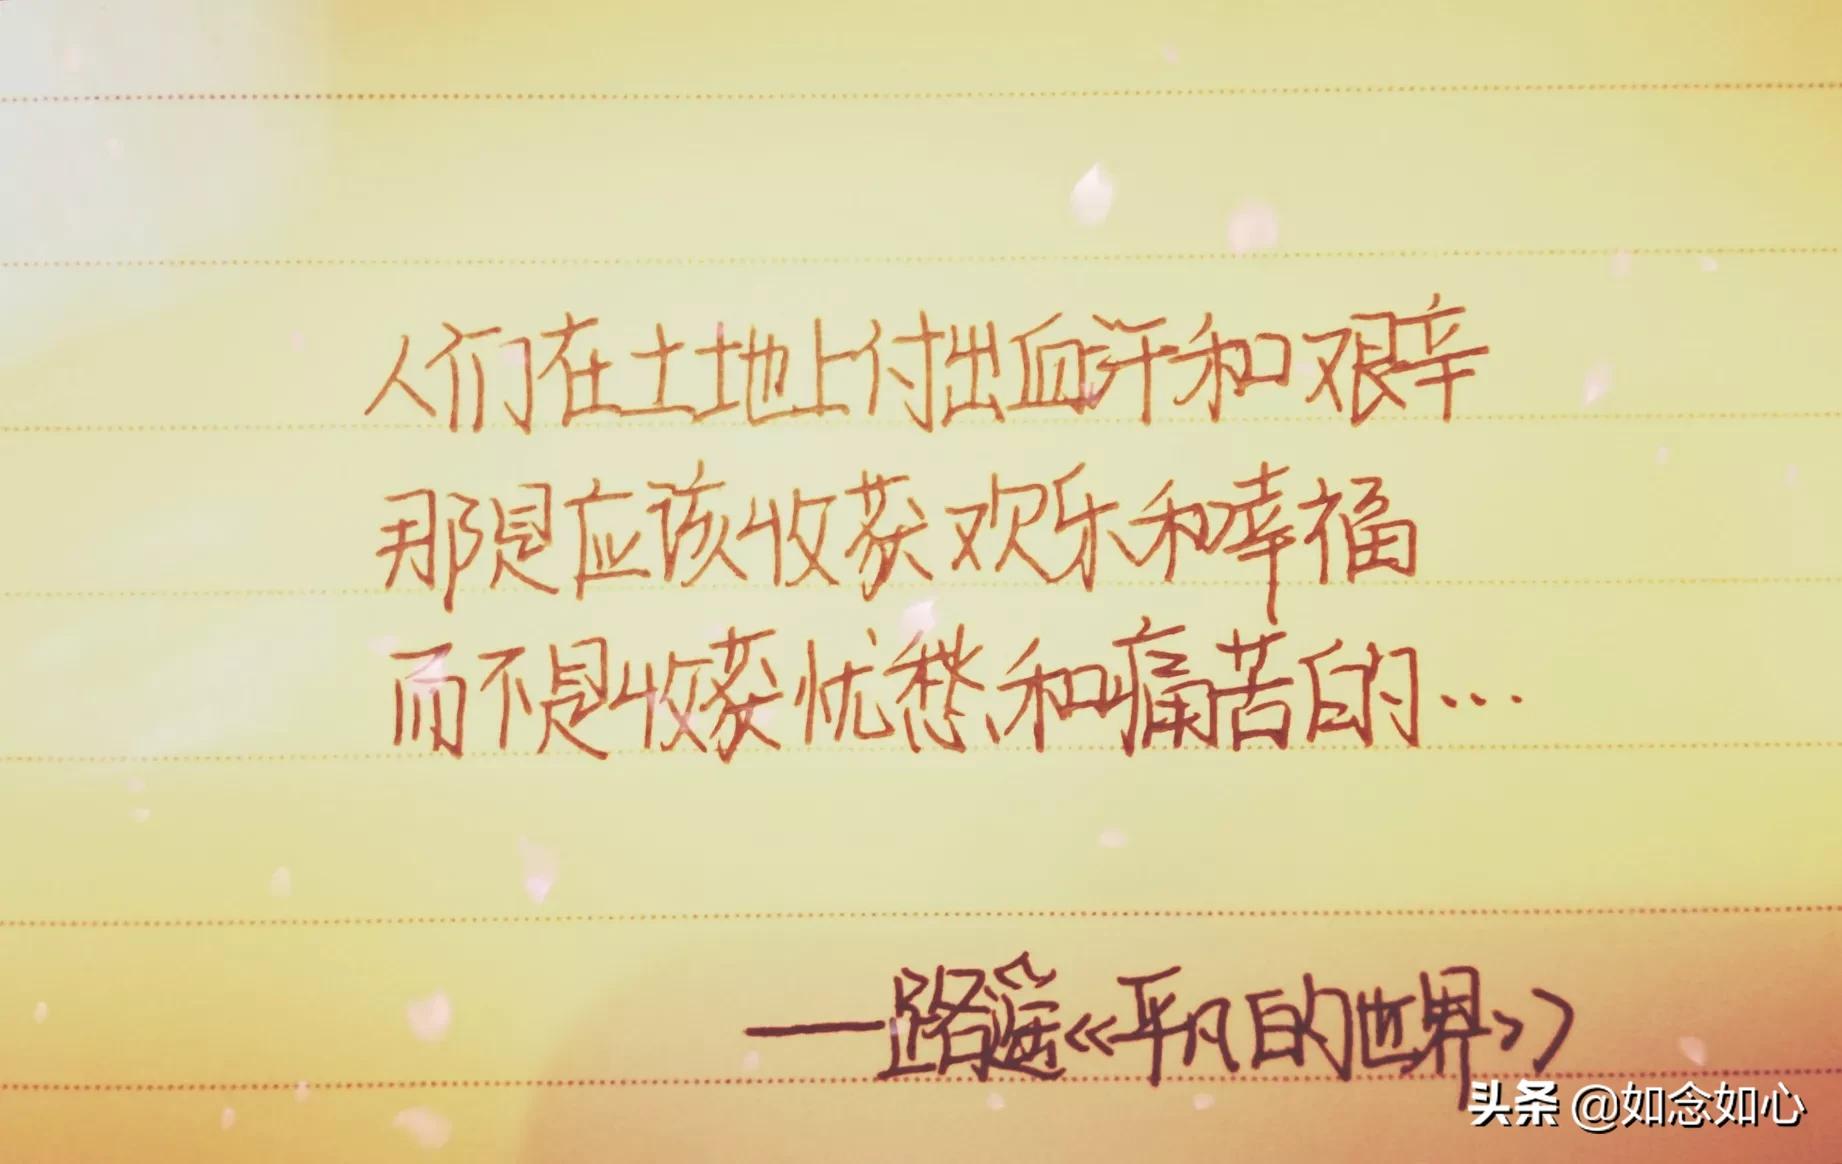 人们在土地上付出血汗和艰辛
那是应该收获欢乐和幸福
而不是收获忧愁和痛苦的…
——路遥《平凡的世界》
头条 @如念如心